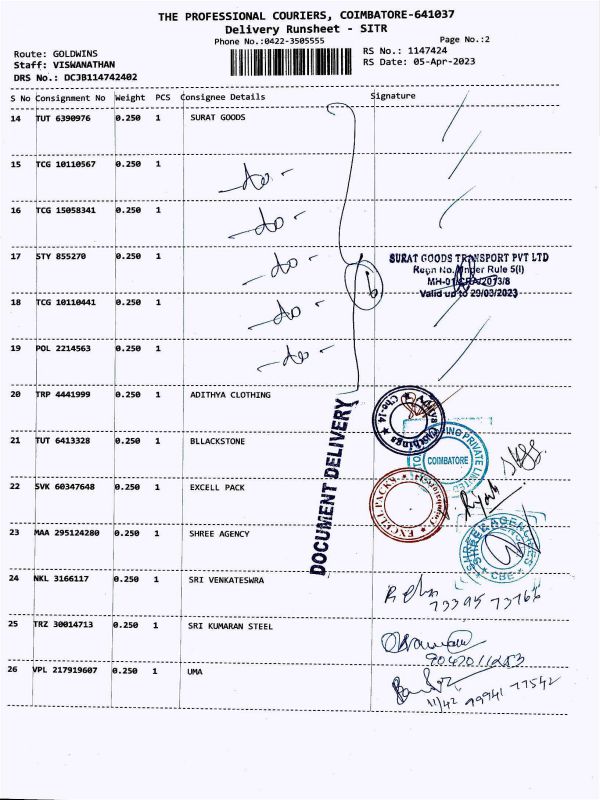 THE PROFESSIONAL COURIERS, COIMBATORE-641037
Delivery Runsheet - SITR
Phone No.:0422-3505555 Page No.:2
Route: GOLDWINS RS No.: 1147424
Staff: VISWANATHAN RS Date: 05-Apr-2023
DRS No.: DCJB114742402
S No Consignment No Weight PCS Consignee Details Signature
14 TUT 6390976 0.250 1 SURAT GOODS
15 TCG 10110567 0.250 1 -do-
16 TCG 15058341 0.250 1 -do-
17 STY 855270 0.250 1 -do-
SURAT GOODS TRANSPORT PVT LTD
Regn No. Under Rule 5(I)
Valid up to 29/03/2023
6
18 TCG 10110441 0.250 1 -do-
19 POL 2214563 0.250 1 -do-
20 TRP 4441999 0.250 1 ADITHYA CLOTHING
Cbe-14
DOCUMENT DELIVERY
21 TUT 6413328 0.250 1 BLLACKSTONE
PRIVATE LIMITED
COIMBATORE
22 SVK 60347648 0.250 1 EXCELL PACK
EXCELL PACKS
23 MAA 295124280 0.250 1 SHREE AGENCY
SHREE AGENCIES
CBE
24 NKL 3166117 0.250 1 SRI VENKATESWRA
25 TRZ 30014713 0.250 1 SRI KUMARAN STEEL
26 VPL 217919607 0.250 1 UMA
11/42 99941 77542